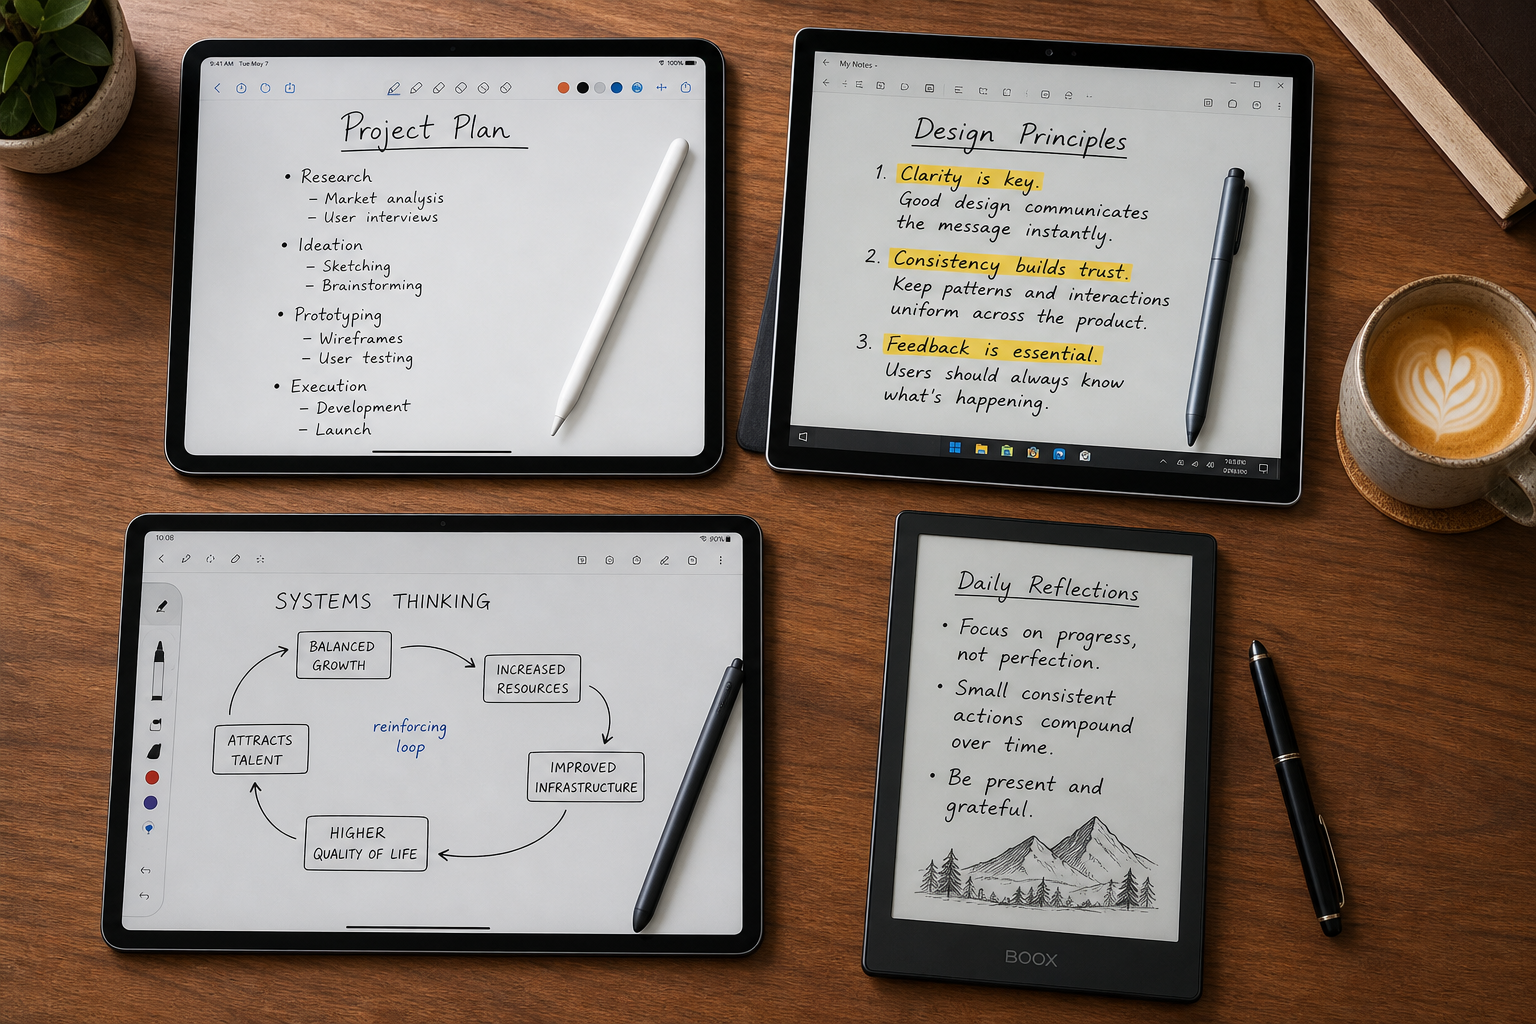 9:41 AM Tue May 7
100%
Project Plan
• Research
– Market analysis
– User interviews
• Ideation
– Sketching
– Brainstorming
• Prototyping
– Wireframes
– User testing
• Execution
– Development
– Launch
My Notes
Design Principles
1. Clarity is key.
Good design communicates
the message instantly.
2. Consistency builds trust.
Keep patterns and interactions
uniform across the product.
3. Feedback is essential.
Users should always know
what's happening.
10:08
90%
SYSTEMS THINKING
BALANCED
GROWTH
INCREASED
RESOURCES
IMPROVED
INFRASTRUCTURE
HIGHER
QUALITY OF LIFE
ATTRACTS
TALENT
reinforcing
loop
Daily Reflections
• Focus on progress,
not perfection.
• Small consistent
actions compound
over time.
• Be present and
grateful.
BOOX